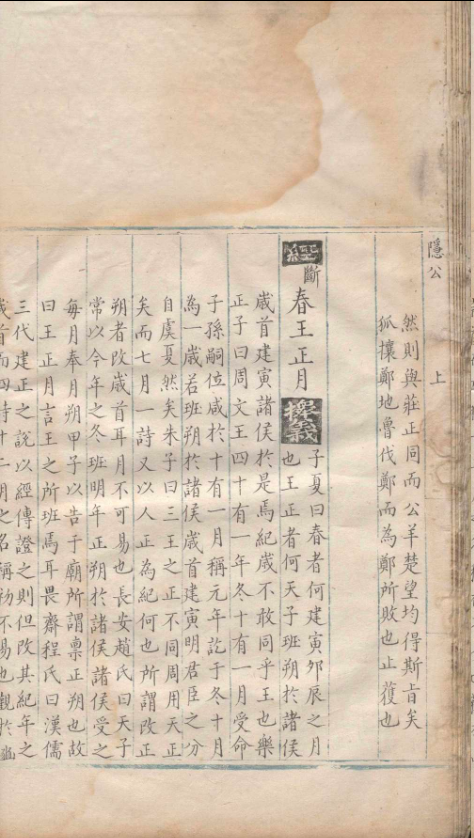 隱公
上
然則與莊正同而公羊楚望均得斯旨矣
狐攘鄭地魯伐鄭而為鄭所敗也止也
經斷春王正月義
子夏曰春者何建寅卯辰之月
也王正者何天子班朔於諸侯
歲首建寅諸侯於是焉紀歲不敢同乎王也樂
正子曰周文王四十有一年冬十有一月受命
于孫嗣位咸於十有一月稱元年訖于冬十月
為一歲若班朔於諸侯歲首建寅明君臣之分
自虞夏然矣朱子曰三王之正不同周用天正
矣而七月一詩又以人正為紀何也所謂改正
朔者改歲首耳月不可易也長安趙氏曰天子
常以今年之冬班明年正朔於諸侯諸侯受之
每月奉月朔甲子以告于廟所謂稟正朔也故
曰王正月言王之所班焉耳畏齋程氏曰漢儒
三代建正之說以經傳證之則但改其紀年之
歲首而四時十二月之名稱初不易也觀於豳